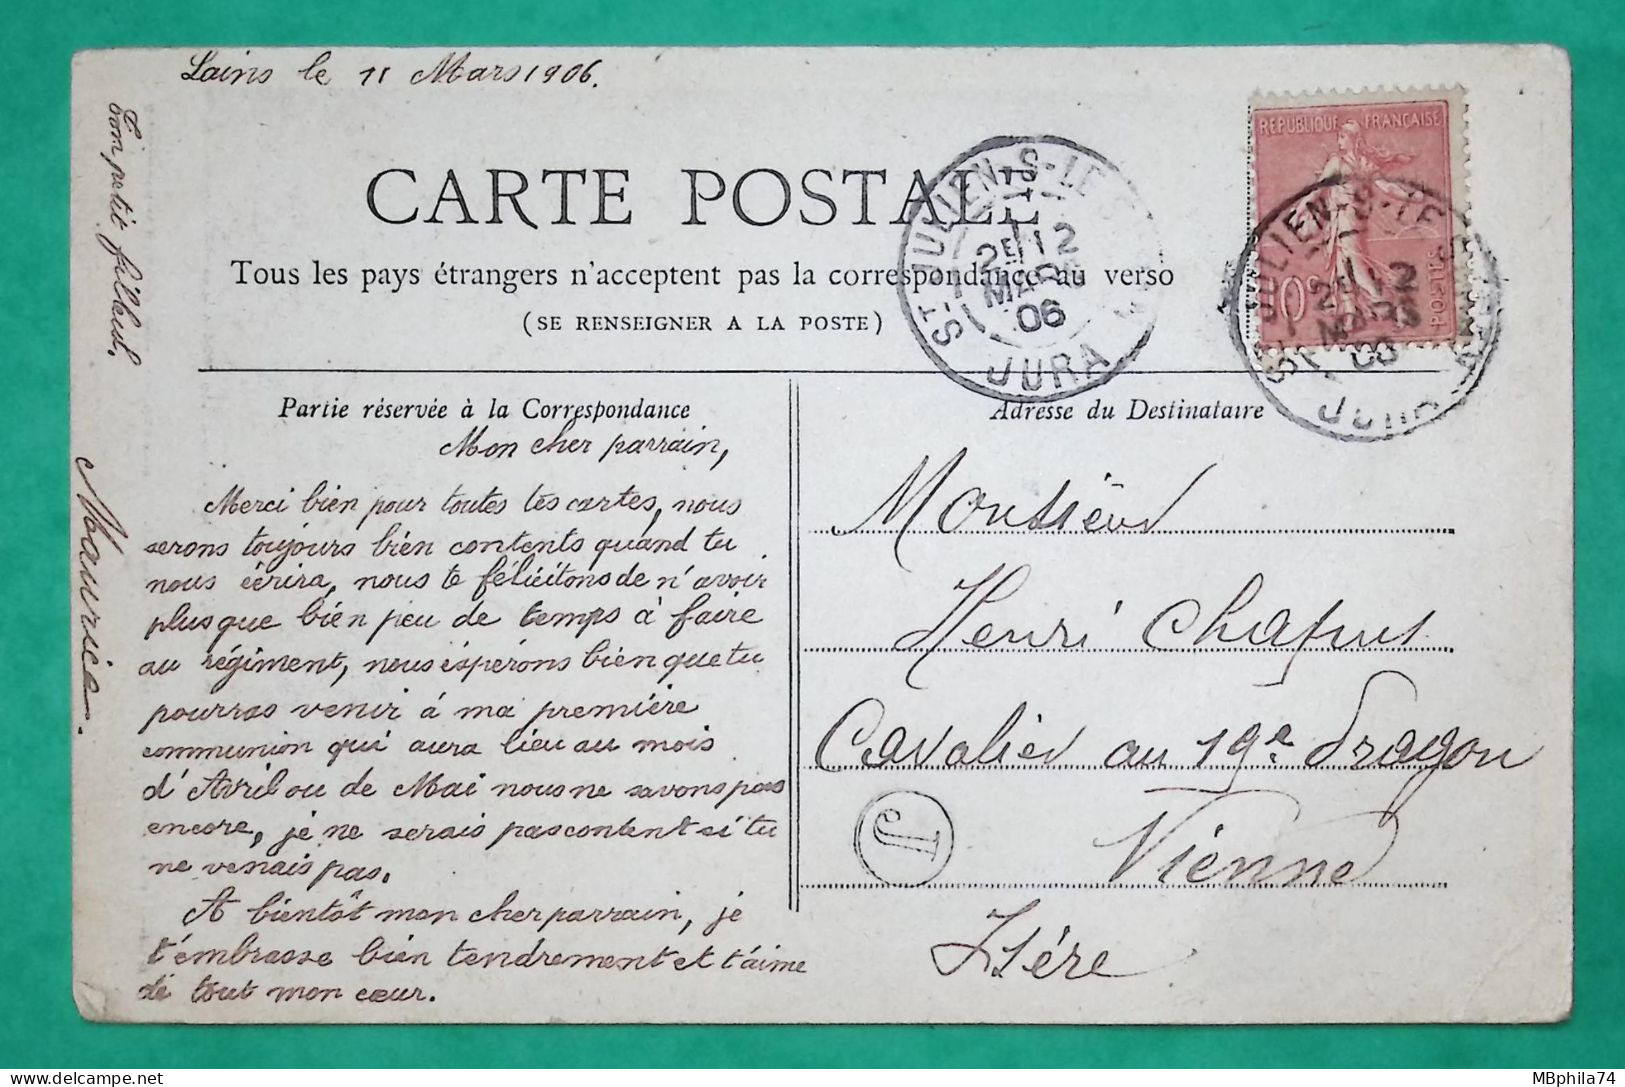 Lains le 11 Mars 1906.
CARTE POSTALE
Tous les pays étrangers n'acceptent pas la correspondance au verso
(SE RENSEIGNER A LA POSTE)
RÉPUBLIQUE FRANÇAISE
10c POSTES
ST-JULIEN-S-LE-S
2E 12
MARS
06
JURA
ST-JULIEN-S-LE-S
2E 12
MARS
06
JURA
Partie réservée à la Correspondance
Mon cher parrain,
Merci bien pour toutes tes cartes, nous
serons toujours bien contents quand tu
nous écrira, nous te félicitons de n'avoir
plus que bien peu de temps à faire
au régiment, nous éspérons bien que tu
pourras venir à ma première
communion qui aura lieu au mois
d'Avril ou de Mai nous ne savons pas
encore, je ne serais pas content si tu
ne venais pas.
A bientôt mon cher parrain, je
t'embrasse bien tendrement et t'aime
de tout mon cœur.
Ton petit filleul.
Maurice.
Adresse du Destinataire
Monsieur
Henri Chapuis
Cavalier au 19e Dragon
Vienne
Isère
J
MBphila74